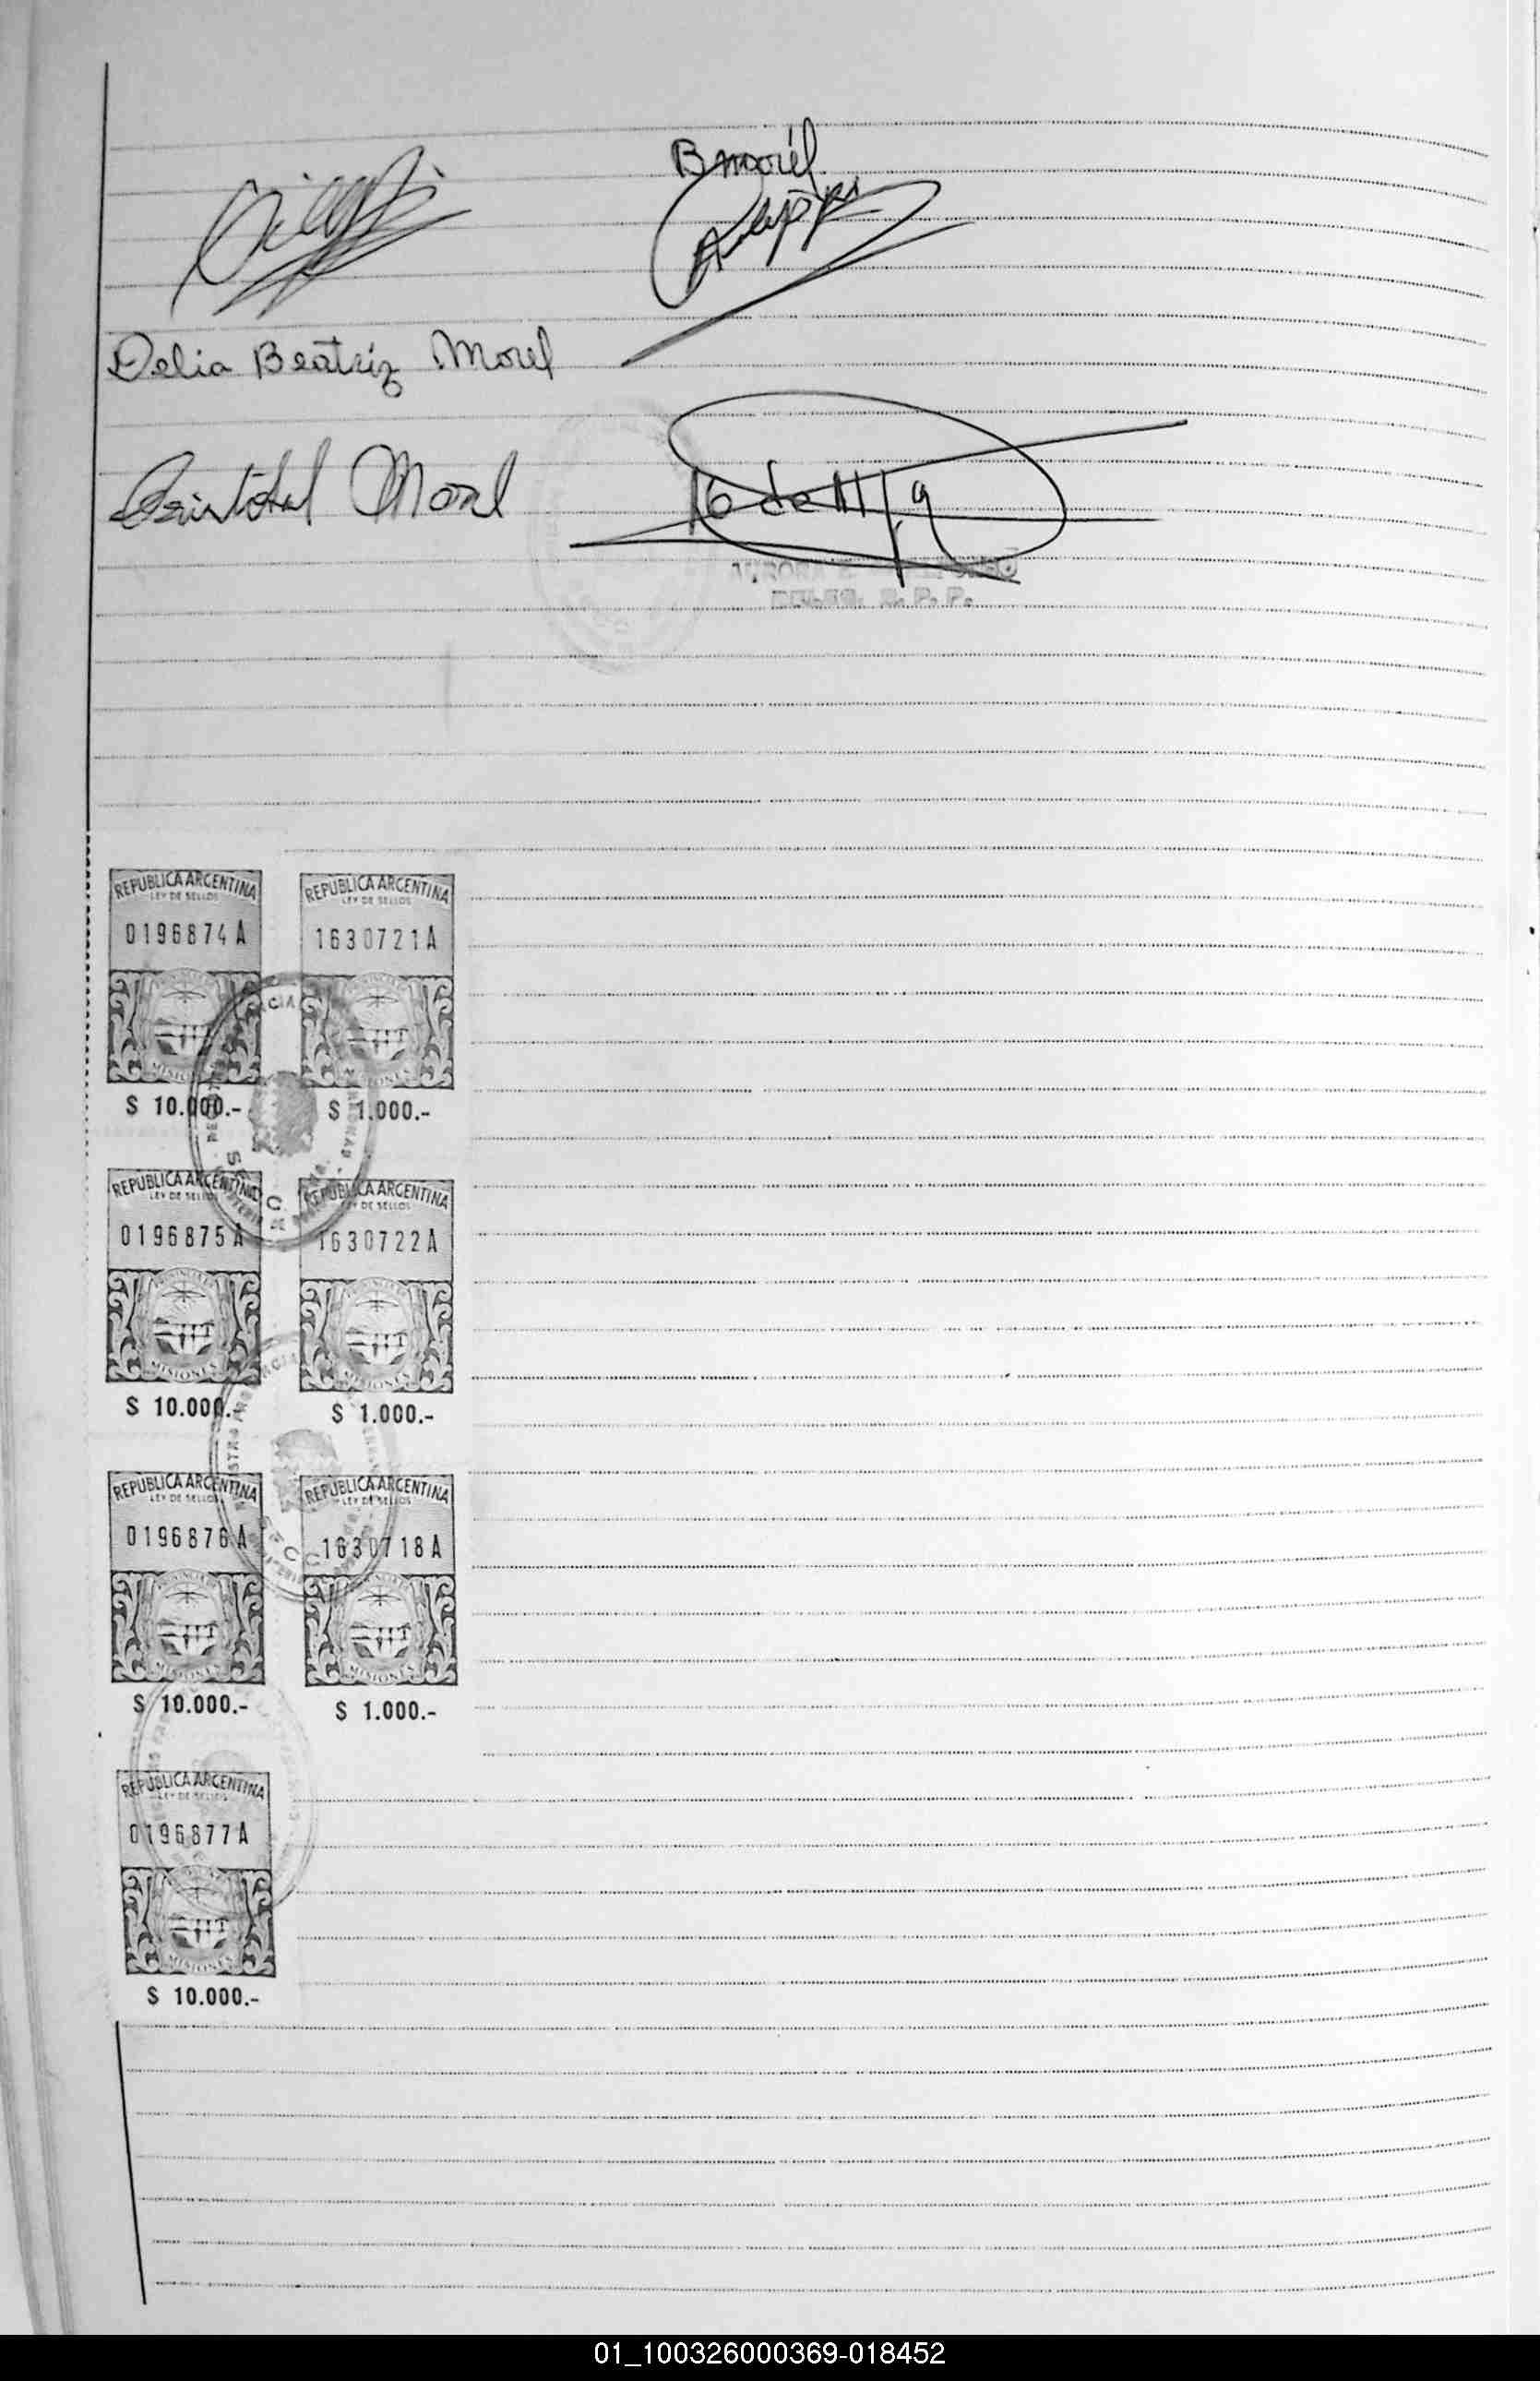 B Morel
Delia Beatriz Morel
Cristobal Morel
DELEG. R. P. P.
REPUBLICA ARGENTINA REPUBLICA ARGENTINA
LEY DE SELLOS LEY DE SELLOS
0196874A 1630721A
MISIONES MISIONES
$ 10.000.- $ 1.000.-
REPUBLICA ARGENTINA REPUBLICA ARGENTINA
LEY DE SELLOS LEY DE SELLOS
0196875A 1630722A
MISIONES
$ 10.000.- $ 1.000.-
REPUBLICA ARGENTINA REPUBLICA ARGENTINA
LEY DE SELLOS LEY DE SELLOS
0196876A 1630718A
MISIONES MISIONES
$ 10.000.- $ 1.000.-
REPUBLICA ARGENTINA
LEY DE SELLOS
0196877A
MISIONES
$ 10.000.-
01_100326000369-018452